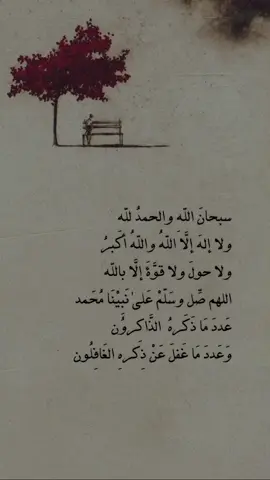 سبحانَ اللّه والحمدُ للّه
ولا إلهَ إلَّا اللّهُ واللّهُ أكبرُ
ولا حولَ ولا قوَّةَ إلَّا باللّه
اللهم صِّل وسَلّمْ عَلىٰ نَبيْنَا مُحَمد
عَددَ مَا ذَكَرهُ الذَّاكروُن
وَعَددَ مَا غَفلَ عَنْ ذِكَرهِ الغَافِلُون